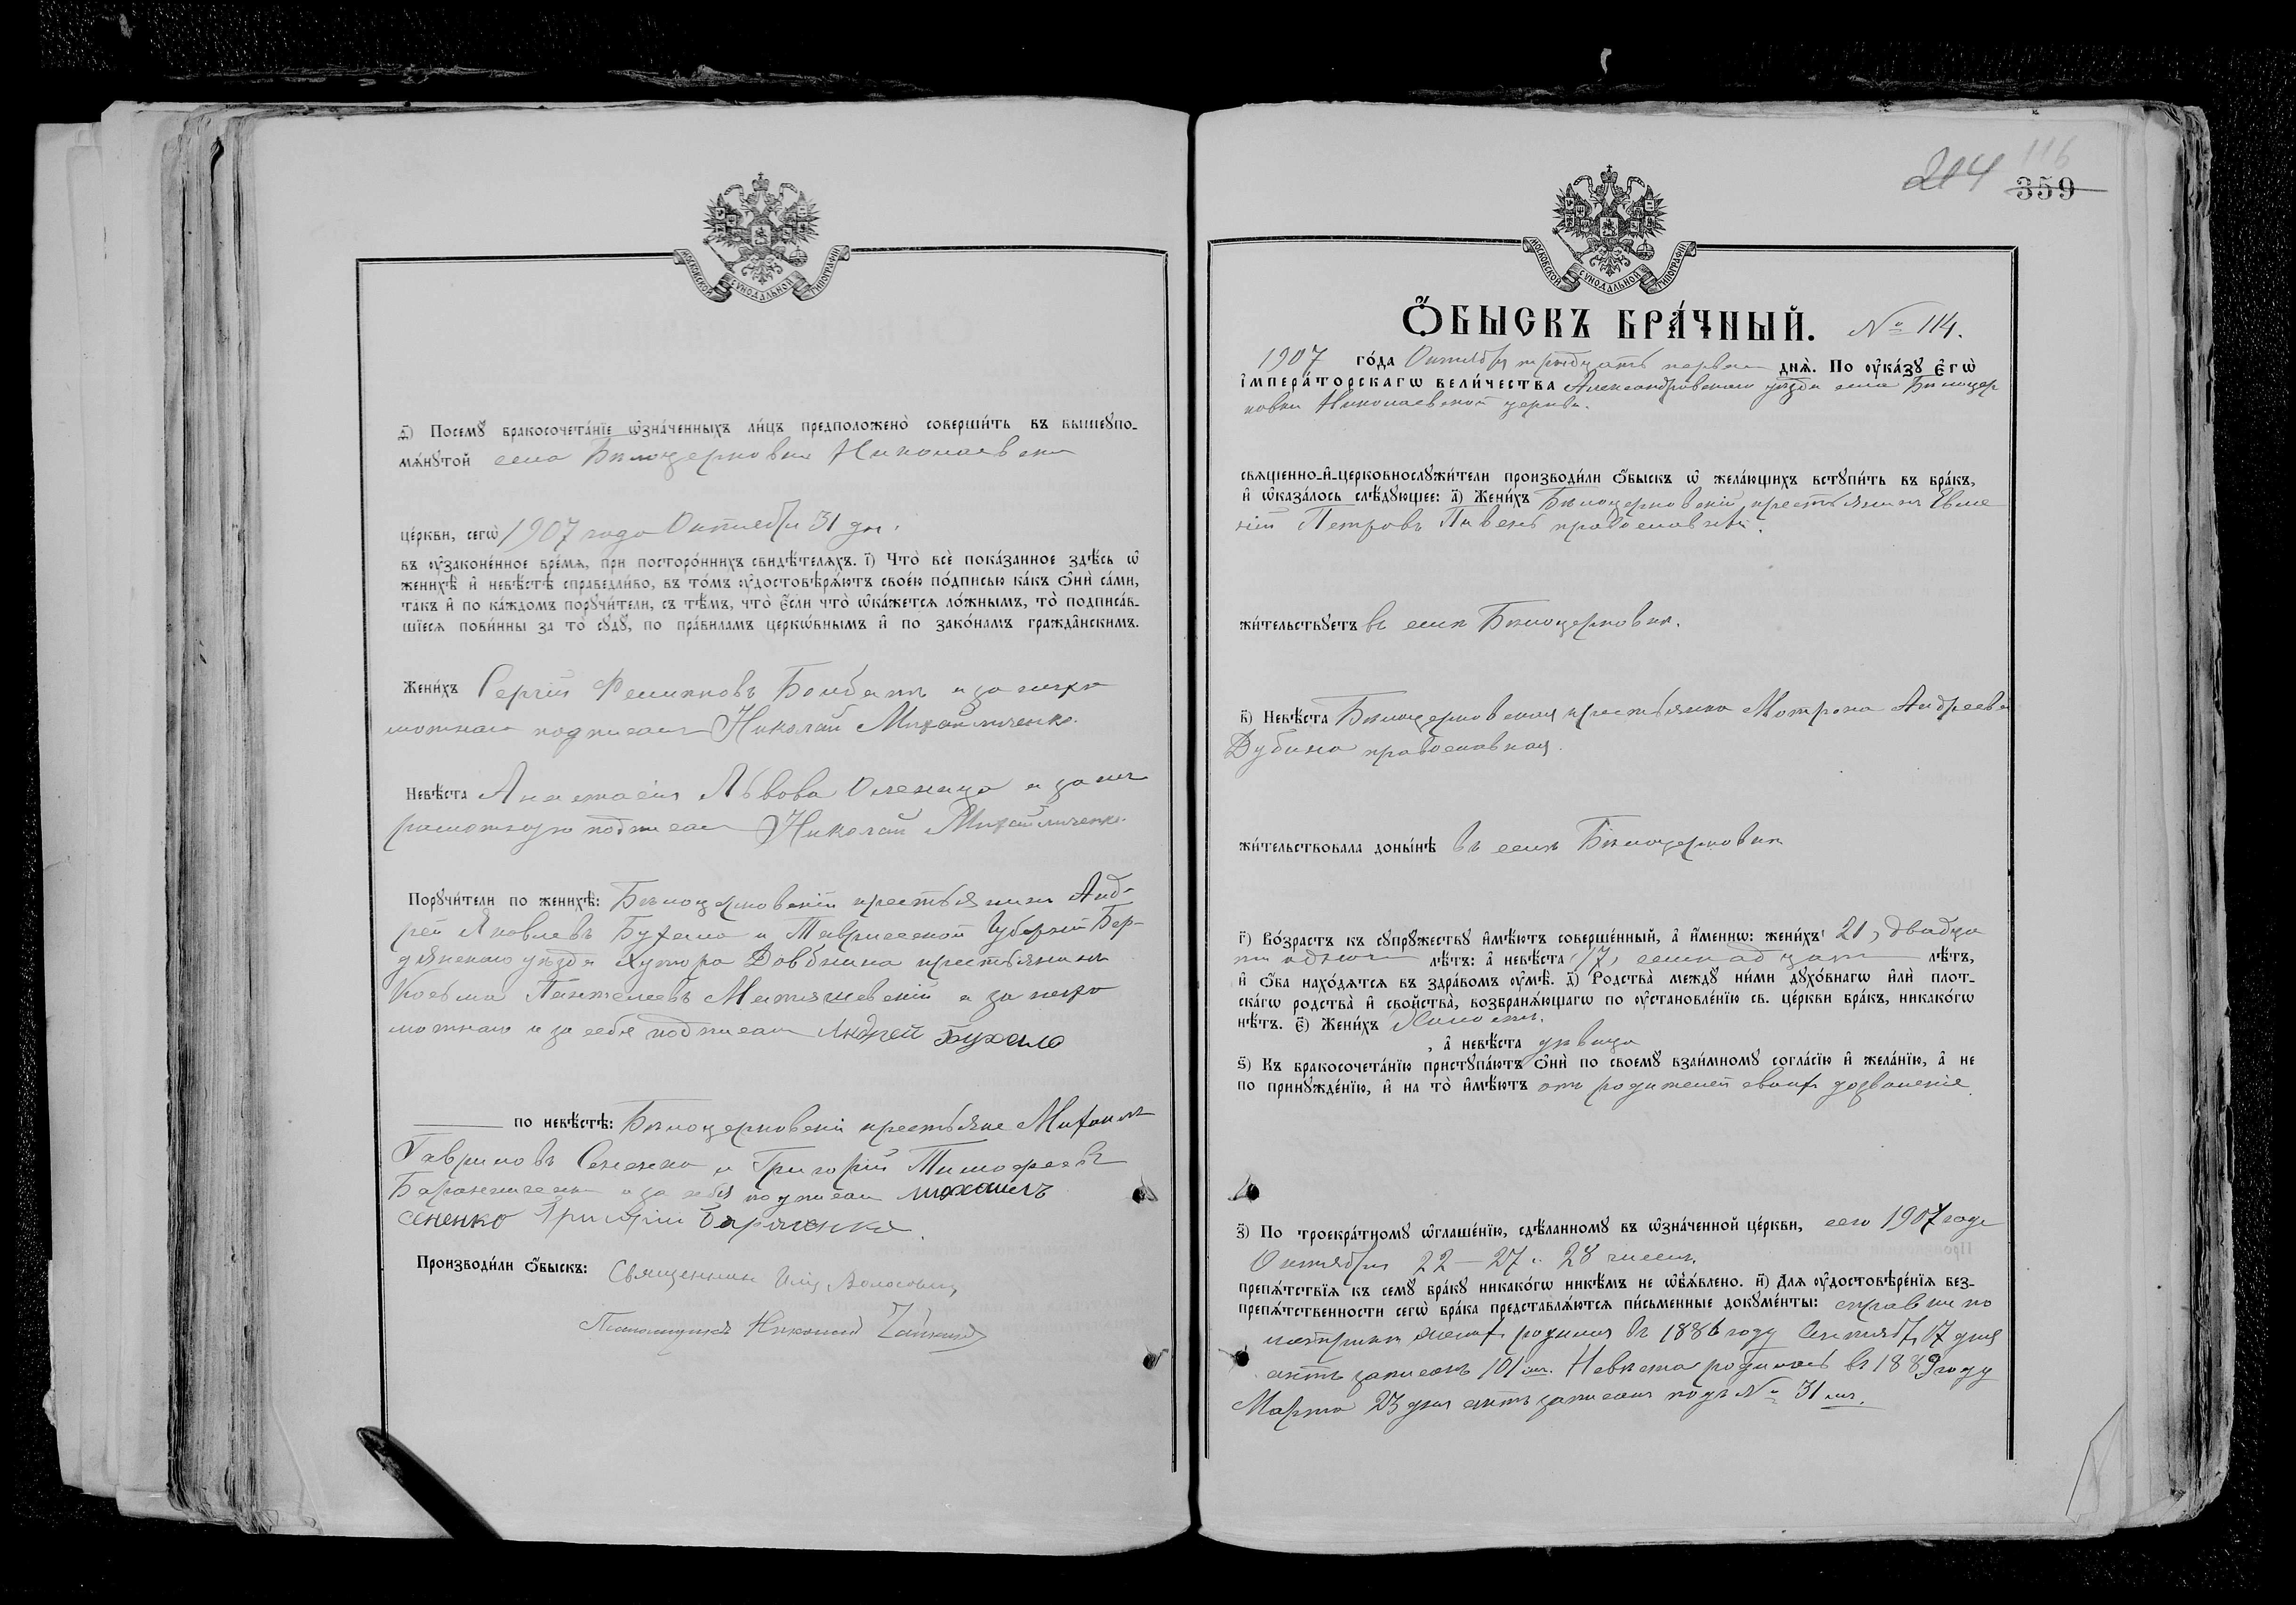 МОСКОВСКОЙ СѴНОДАЛЬНОЙ ТИПОГРАФІИ
д҃і) Посемꙋ̀ бракосочета́нїе ѡ҆зна́ченныхъ ли́цъ предположено̀ соверши́ть въ вышеꙋпо-
мѧ́нꙋтой села Бѣлоцерковки Николаевской
це́ркви, сегѡ̀ 1907 года Октября 31 дня.
въ ᲂу҆зако́ненное вре́мѧ, при посторо́ннихъ свидѣ́телѧхъ. і҃) Что̀ всѐ пока́занное здѣ́сь ѡ҆
женихѣ̀ и҆ невѣ́стѣ справедли́во, въ то́мъ ᲂу҆достовѣрѧ́ютъ свое́ю по́дписью ка́къ ѻ҆нѝ са́ми,
та́къ и҆ по ка́ждомъ порꙋчи́тели, съ тѣ́мъ, что̀ є҆́сли что̀ ѡ҆ка́жетсѧ ло́жнымъ, то̀ подписа́в-
шїесѧ пови́нны за то̀ сꙋдꙋ̀, по пра́виламъ церко́внымъ и҆ по зако́намъ гражда́нскимъ.
Жени́хъ Сергій Филиповъ а за негра
мотнаго подписался Николай Михайличенко.
Невѣ́ста Анастасія Львова Оленица а за не
грамотную подписался Николай Михайличенко.
Порꙋчи́тели по женихѣ̀: Бѣлоцерковскій крестьянинъ Анд-
рей Яковлевъ Бухало и Таврической Губерніи Бер-
дянскаго уѣзда хутора Довбнина крестьянинъ
Косьма Пантелеевъ а за негра
мотнаго и за себя подписался Андрей Бухало
по невѣ́стѣ: Бѣлоцерковскіи крестьяне Михаилъ
Гавриловъ Сененко и Григорій Тимофеевъ
а за себя подписали Михаилъ
Сененко Григорій
Производи́ли ѻ҆́быскъ: Священникъ Илія
Псаломщикъ Николай
214 116
359
МОСКОВСКОЙ СѴНОДАЛЬНОЙ ТИПОГРАФІИ
Ѻ҆́БЫСКЪ БРА́ЧНЫЙ. № 114.
1907 го́да Октября тридцать перваго днѧ̀. По ᲂу҆ка́зꙋ Є҆гѡ̀
І҆мпера́торскагѡ вели́чества Александровскаго уѣзда села Бѣлоцер
ковки Николаевской церкви.
свѧщенно-и҆-церковнослꙋжи́тели производи́ли ѻ҆́быскъ ѡ҆ жела́ющихъ встꙋпи́ть въ бра́къ,
и҆ ѡ҆каза́лось слѣ́дꙋющее: а҃) Жени́хъ Бѣлоцерковскій крестьянинъ Евме
ній Петровъ Пивень православный.
жи́тельствꙋетъ въ селѣ Бѣлоцерковкѣ.
в҃) Невѣ́ста Бѣлоцерковская крестьянка Мотрона Андреева
Дубина православная.
жи́тельствовала донынѣ̀ въ селѣ Бѣлоцерковкѣ
г҃) Во́зрастъ къ сꙋпрꙋ́жествꙋ и҆мѣ́ютъ соверше́нный, а҆ и҆́менно: жени́хъ 21, двадца
ти одного лѣ́тъ: а҆ невѣ́ста 17, семнадцати лѣ́тъ,
и҆ ѻ҆́ба нахо́дѧтсѧ въ здра́вомъ ᲂу҆мѣ̀. д҃) Родства̀ междꙋ̀ ни́ми дꙋхо́внагѡ и҆лѝ плот-
ска́гѡ родства̀ и҆ свойства̀, возбранѧ́ющагѡ по ᲂу҆становле́нїю св. це́ркви бра́къ, никако́гѡ
нѣ́тъ. є҃) Жени́хъ Холостъ.
, а҆ невѣ́ста дѣвица
ѕ҃) Къ бракосочета́нїю пристꙋпа́ютъ ѻ҆нѝ по своемꙋ̀ взаи́мномꙋ согла́сїю и҆ жела́нїю, а҆ не
по принꙋжде́нїю, и҆ на то̀ и҆мѣ́ютъ отъ родителей своихъ дозволеніе.
з҃) По троекра́тномꙋ ѡ҆глаше́нїю, сдѣ́ланномꙋ въ ѡ҆зна́ченной це́ркви, сего 1907 года
Октября 22 — 27 и 28 чиселъ.
препѧ́тствїѧ къ семꙋ̀ бра́кꙋ никако́гѡ никѣ́мъ не ѡ҆б̾ѧ́влено. и҃) Длѧ ᲂу҆достовѣре́нїѧ без-
препѧ́тственности сегѡ̀ бра́ка представлѧ́ютсѧ пи́сьменные докꙋме́нты: справки по
метрикамъ женихъ родился въ 1886 году Сентября 17 дня
актъ записанъ 101 мъ. Невѣста родилась въ 1889 году
Марта 23 дня актъ записанъ подъ № 31 мъ.